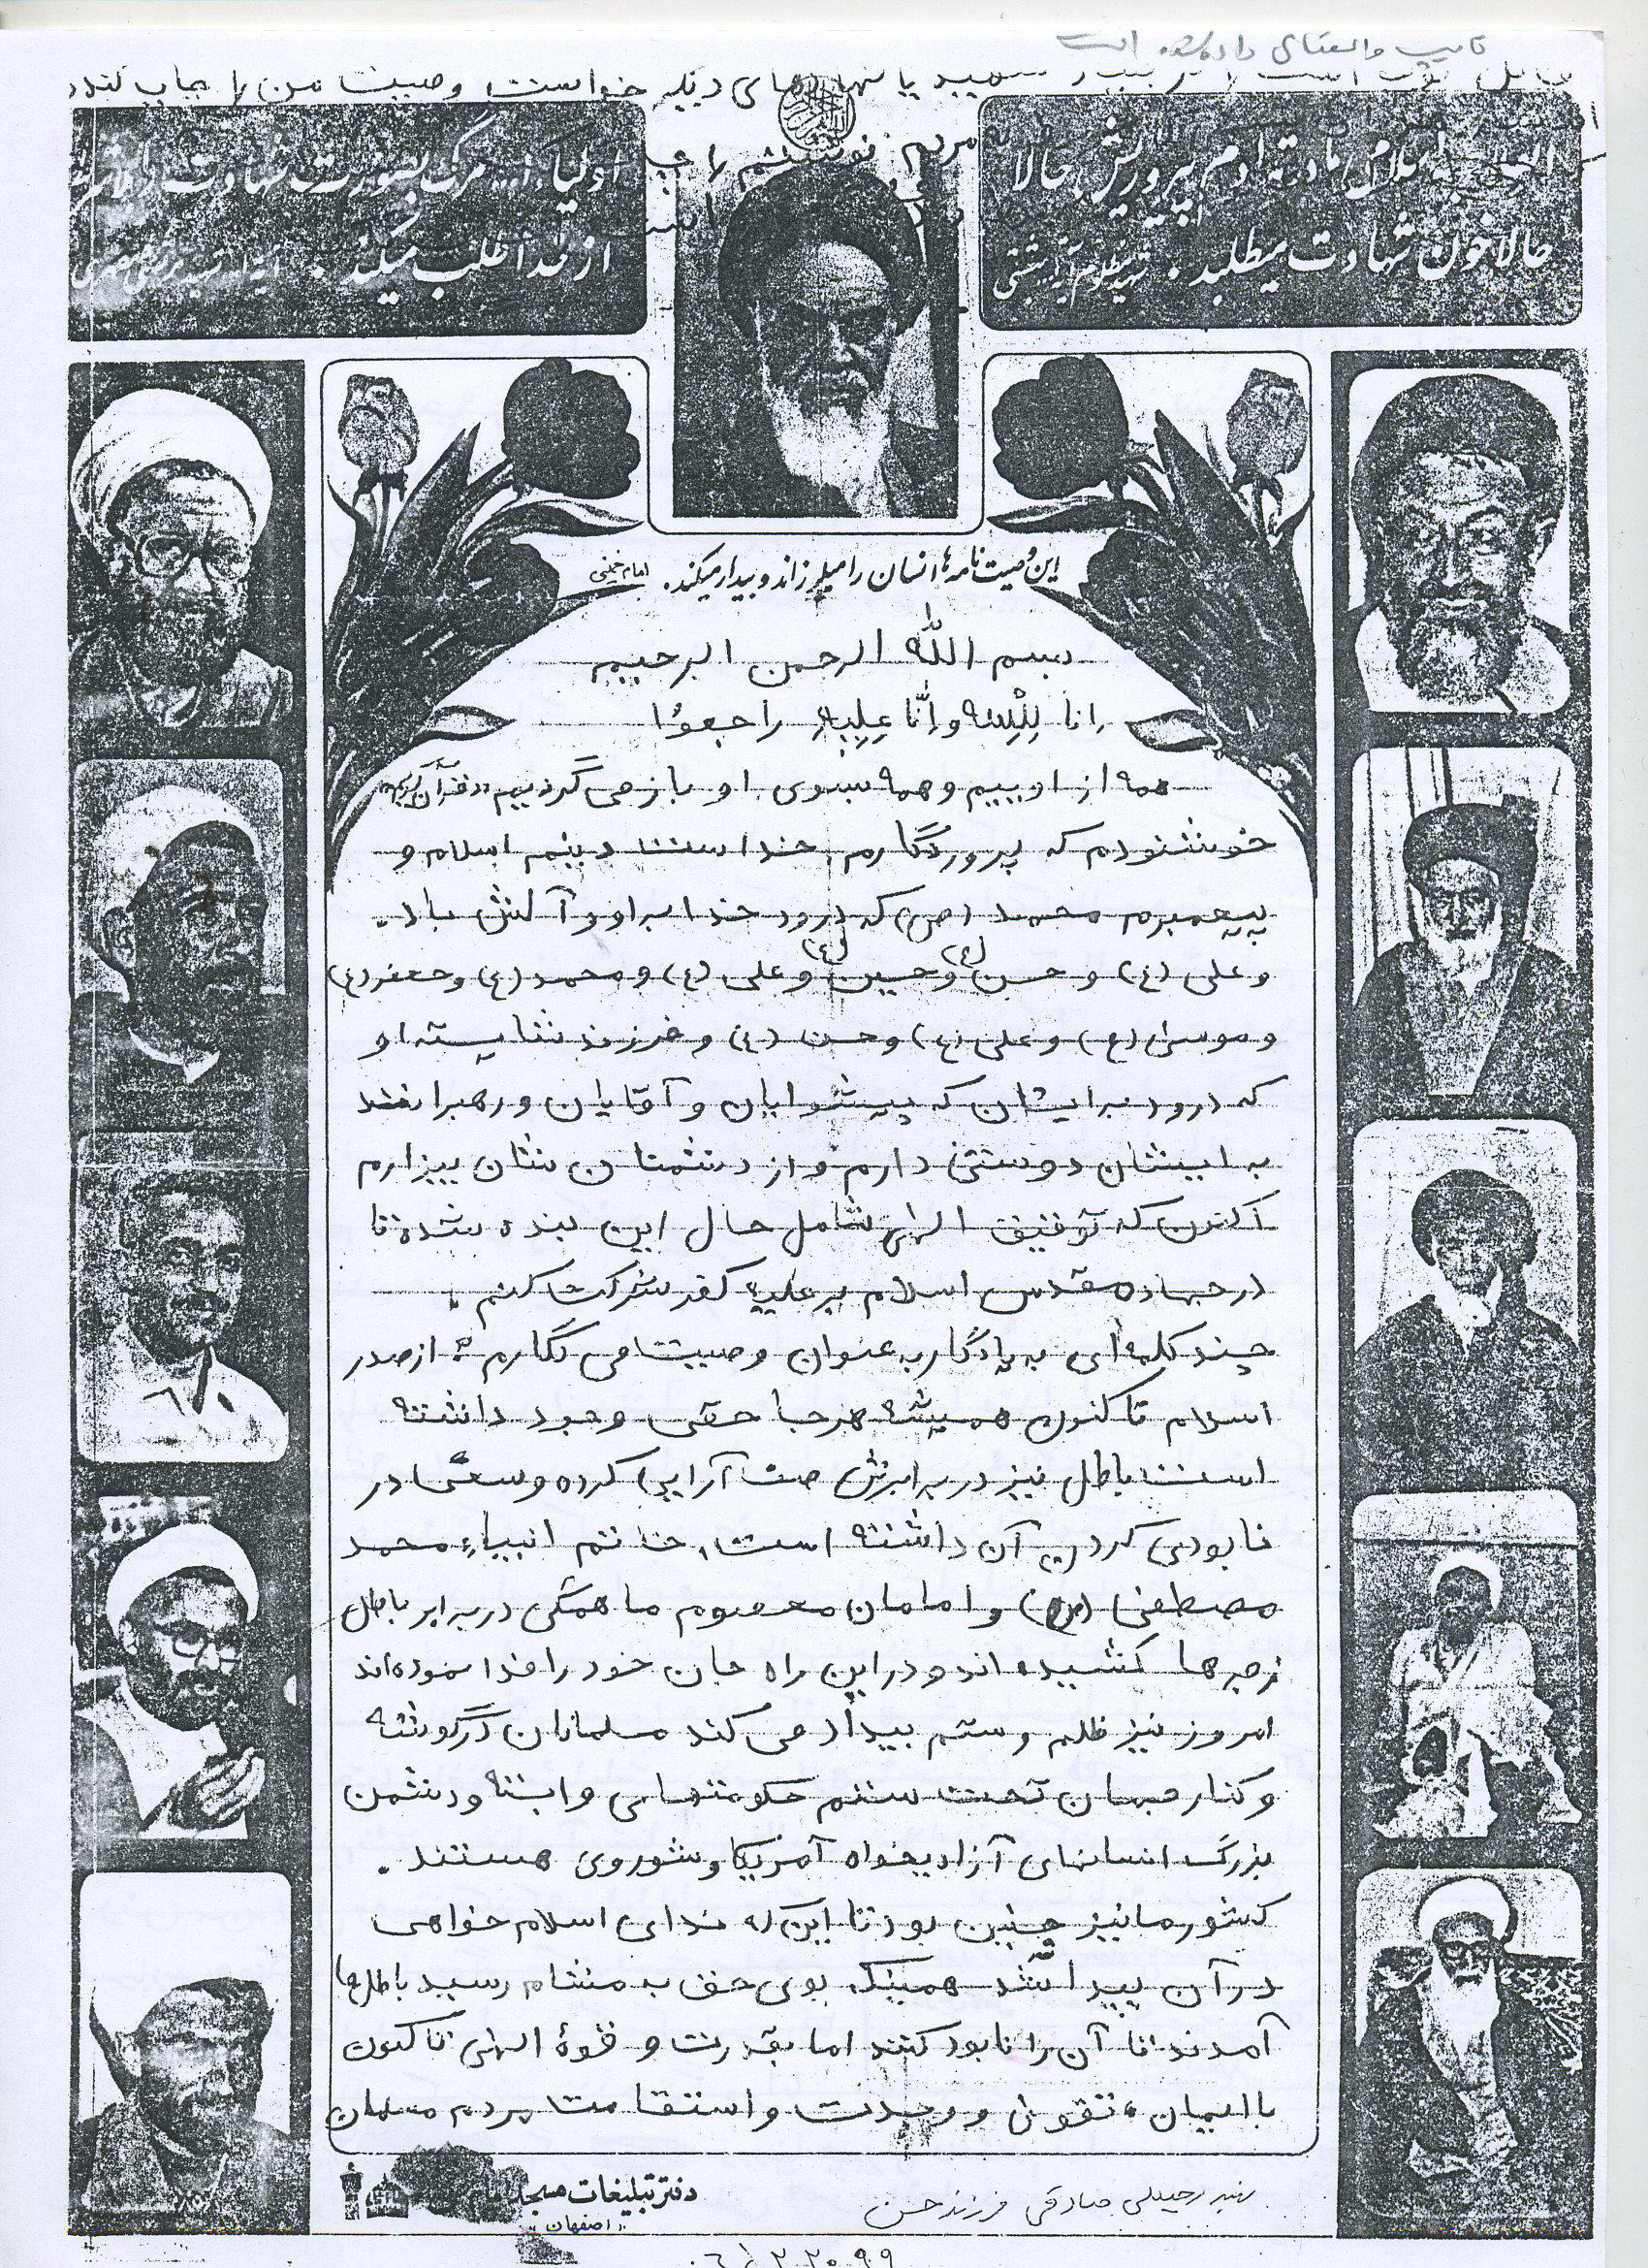 تایپ و استفاده داده شده است
یا نهادهای دیگر خواست وصیت من را چاپ کند
مردم نوشتم را
اسلام مادرته ادم پیرورش حالا
حالا خون شهادت میطلبد.
اولیاء ا... مرگ بصورت شهادت را
از خدا طلب میکند.
این وصیت نامه ها انسان را میلرزاند و بیدار میکند. امام خمینی
بسم الله الرحمن الرحیم
انا لِلّٰه و اِنّا عِلیهِ راجعوُا
همه از اوییم و همه بسوی او باز می گردییم «قرآن کریم»
خوشنودم که پروردگارم خداست دینم اسلام و
پیعمبرم محمد (ص) که درود خدا بر او و آلش باد.
و علی (ع) و حسن (ع) و حسین (ع) و علی (ع) و محمد (ع) و جعفر (ع)
و موسی (ع) و علی (ع) و حسن (ع) و فرزند شایسته او
که درود بر ایشان که پیشوایان و آقایان و رهبرانند
به ایشان دوستی دارم و از دشمنان شان بیزارم
اکنون که توفیق الهی شامل حال این بنده شده تا
در جهاد مقدس اسلام بر علیه کفر شرکت کنم.
چند کلمه ای به یادگار به عنوان وصیت می نگارم: از صدر
اسلام تا کنون همیشه هر جا حقی وجود داشته
است باطل نیز در برابرش صف آرایی کرده و سعی در
نابودی کردن آن داشته است، خاتم انبیاء محمد
مصطفی (ص) و امامان معصوم ما همگی در برابر باطل
زجرها کشیده اند و در این راه جان خود را فدا نموده اند
امروز نیز ظلم و ستم بیداد می کند مسلمانان در گوشه
و کنار جهان تحت ستم حکومتهای وابسته و دشمن
بزرگ انسانهای آزادیخواه آمریکا و شوروی هستند.
کشور ما نیز چنین بود تا این که ندای اسلام خواهی
در آن پیدا شد همینکه بوی حق به مشام رسید باطل ها
آمدند تا آن را نابود کنند اما بقدرت و قوهٔ الهی تا کنون
با ایمان، تقوی و وحدت و استقامت مردم مسلمان
شهید رحیمعلی صادقی فرزند حسن
دفتر تبلیغات مسجد
"اصفهان"